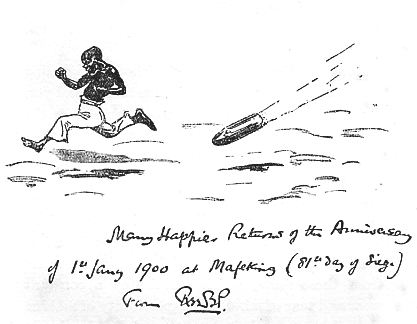 Many Happier Returns of the Anniversary
of 1st Jany 1900 at Mafeking (81st Day of Siege)
From